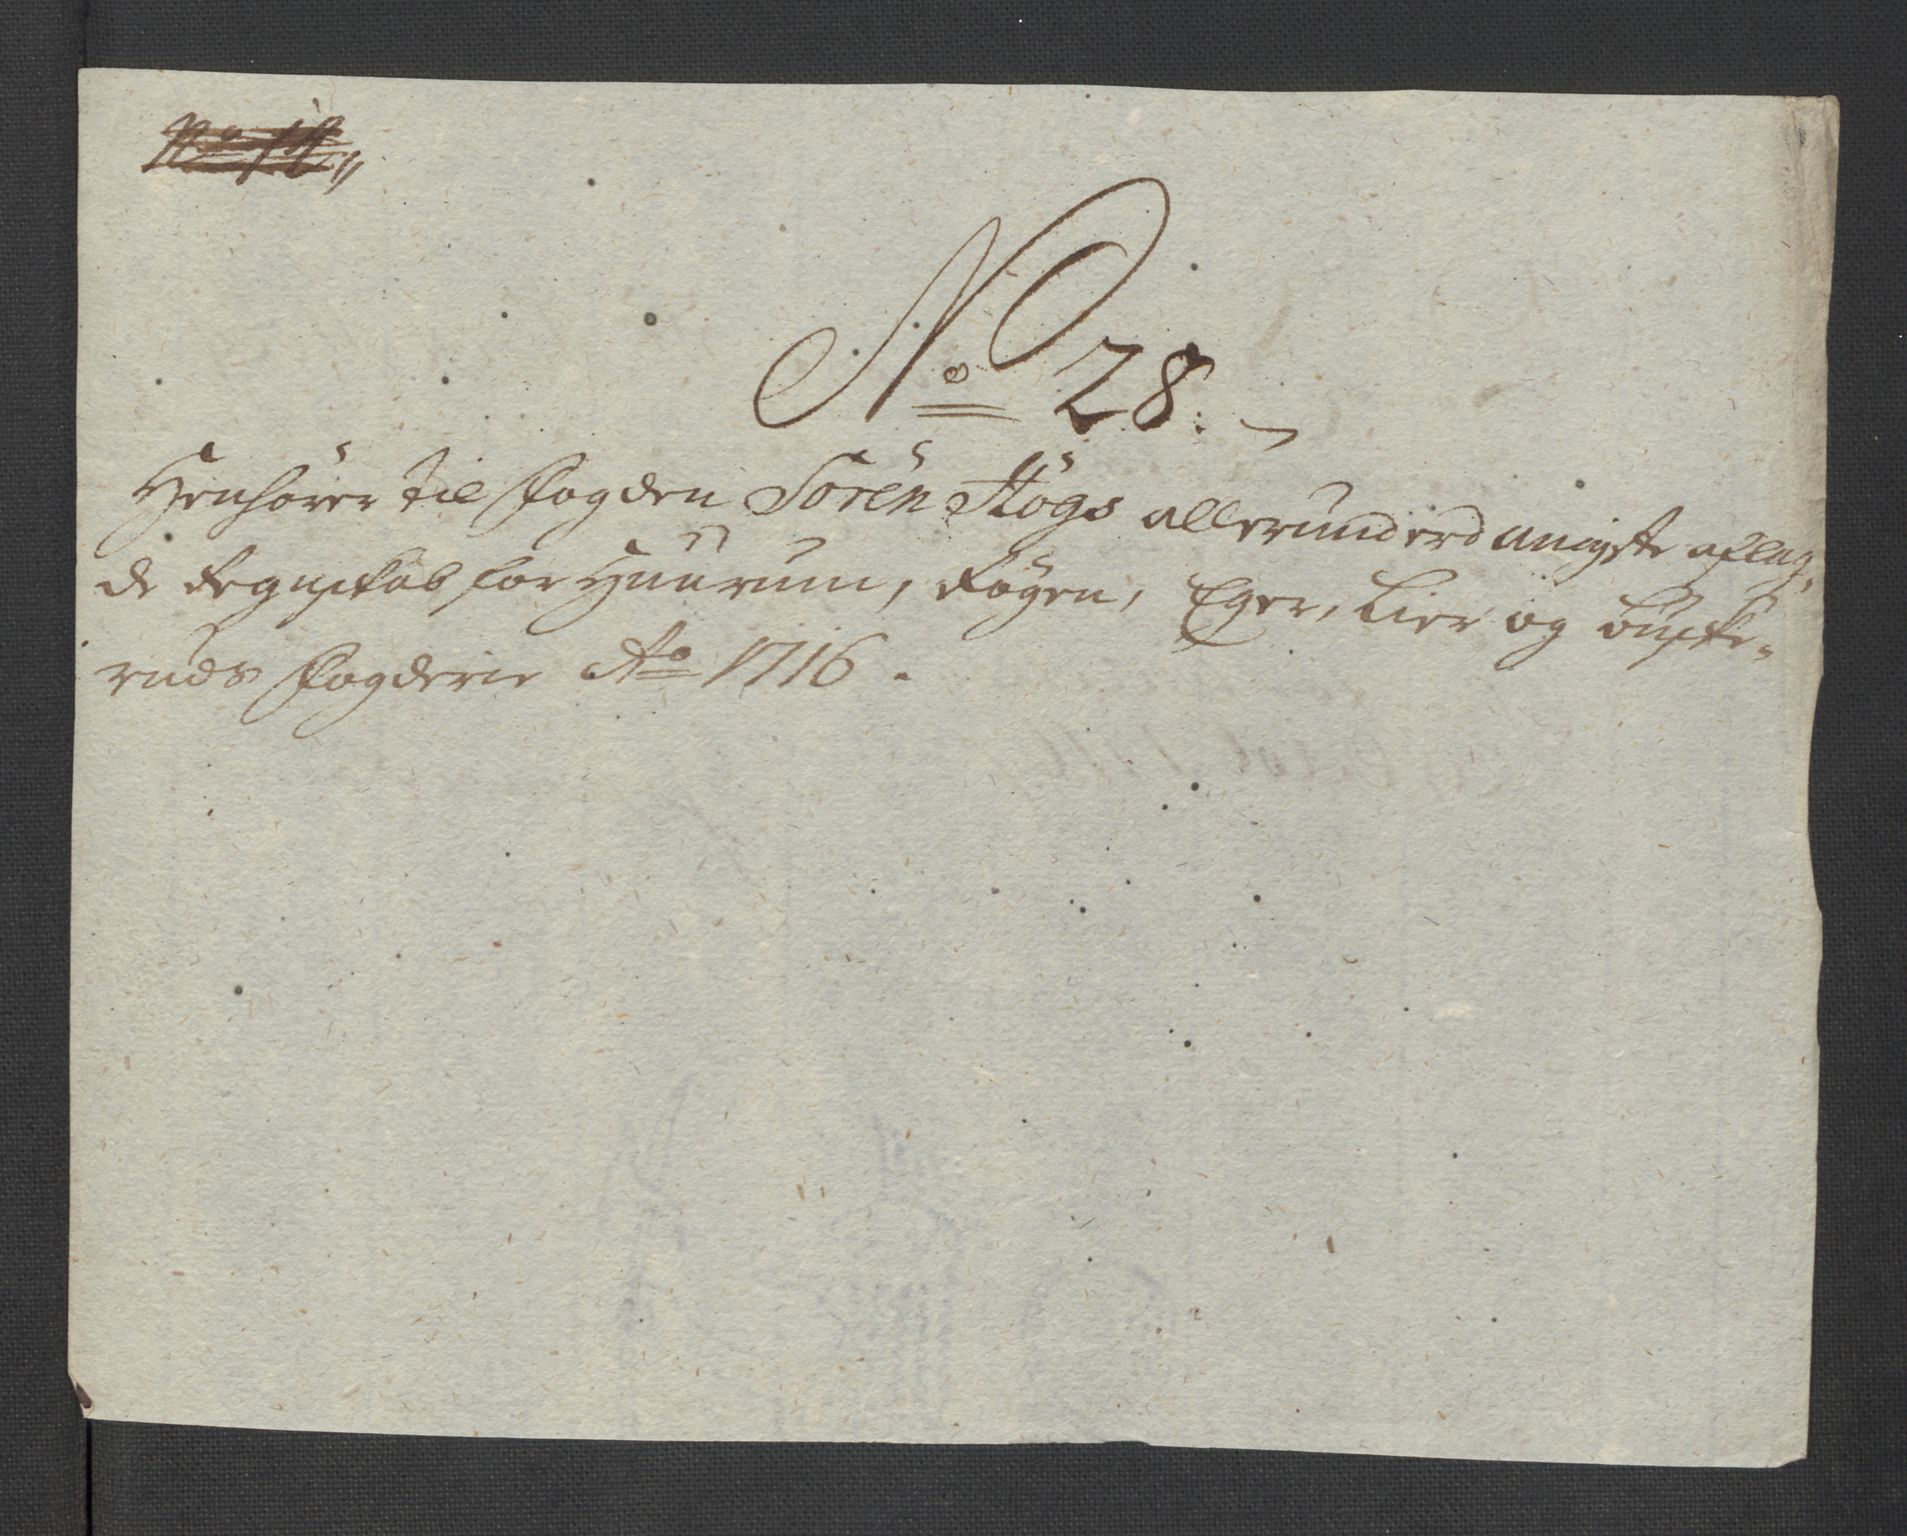 No 28.
Henhører til fogden Sören Högs allerunderdanigste aflag,
de Regnskab for Huurum, Røgen, Eger, Lier og Buske-
ruds fogderie Ao 1716.